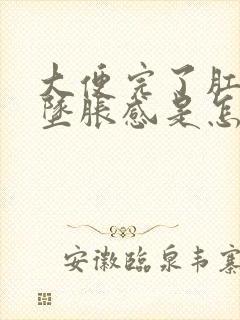 大便完了肛
坠胀感是怎
安徽临泉韦寨